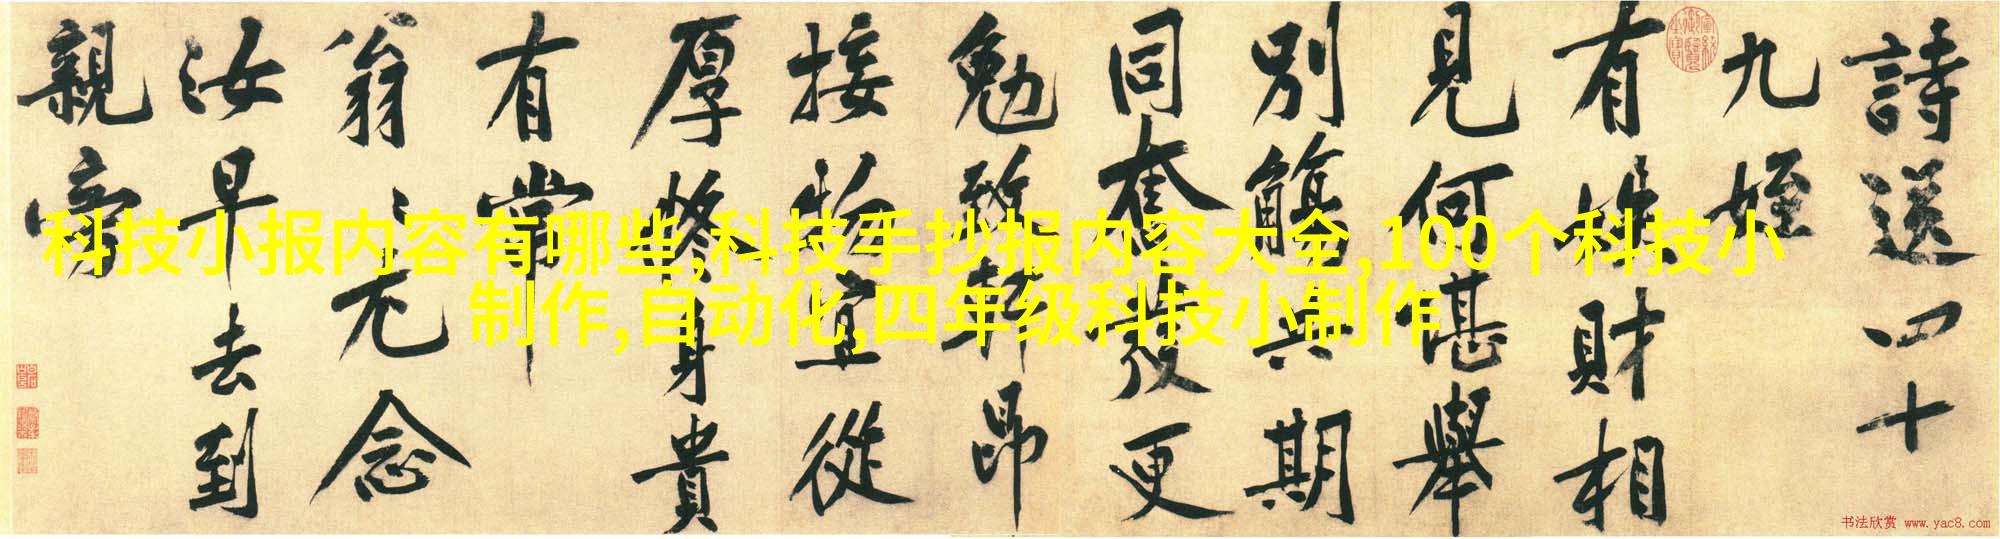 詩送四十
九姪
有財相
見何堪舉
別觴與期
同奮發更
勉致軒昂
接物宜從
厚修身貴
有常
翁〻尤念
汝早去到
親旁
科技小报内容有哪些,科技手抄报内容大全,100个科技小
制作,自动化,四年级科技小制作
书法欣赏 www.yac8.com